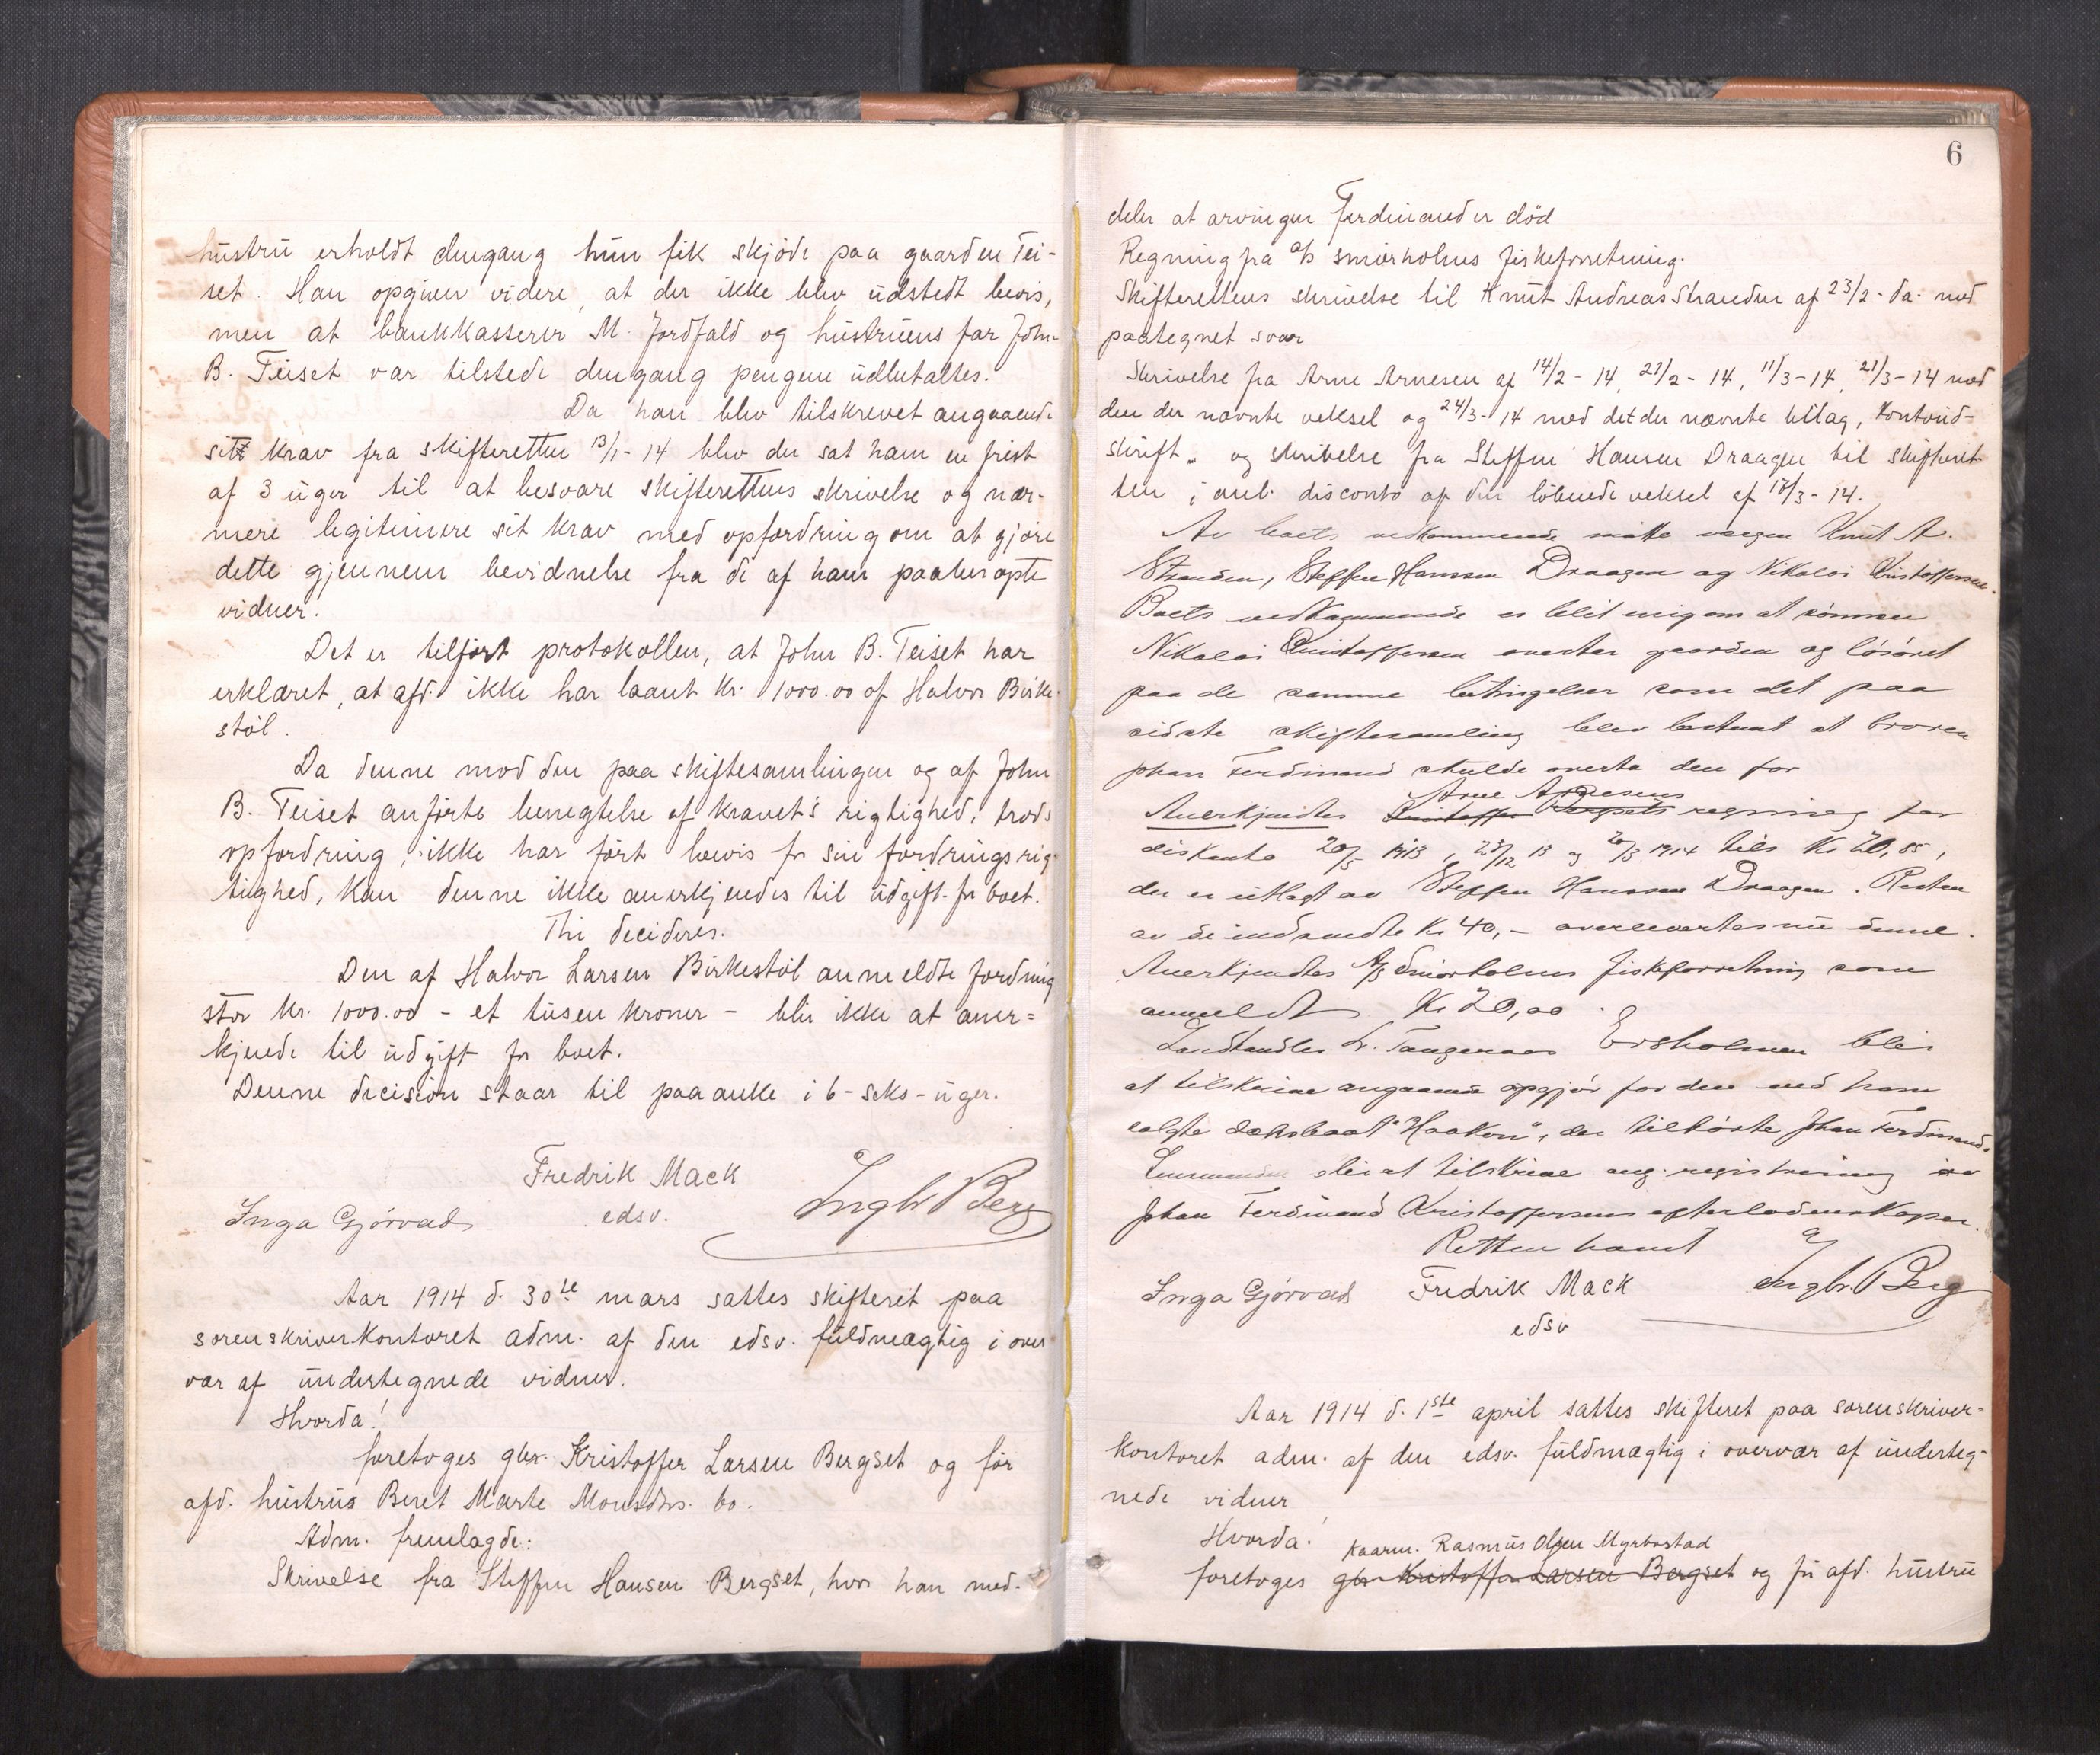 hustru erholdt dengang hun fik skjøde paa gaarden Tei-
set. Han opgiver videre, at der ikke blev udstedt bevis,
men at bankkasserer M. Jordfald og hustruens far John
B. Teiset var tilstede dengang pengene udbetaltes.
Da han blev tilskrevet angaaende
sit krav fra skifteretten 13/1-14 blev der sat ham en frist
af 3 uger til at besvare skifterettens skrivelse og nær-
mere legitimere sit krav med opfordring om at gjøre
dette gjennem bevidnelse fra de af ham paaberopte
vidner.
Det er tilført protokollen, at John B. Teiset har
erklæret, at afd. ikke har laant kr. 1000.00 af Halvor Birke-
støl.
Da denne mod den paa skiftesamlingen og af John
B. Teiset anførte benegtelse af kravet's rigtighed, trods
opfordring, ikke har ført bevis for sin fordrings rig-
tighed, kan denne ikke anerkjendes til udgift for boet.
Thi decideres.
Den af Halvor Larsen Birkestøl anmeldte fordring
stor kr. 1000.00 - et tusen kroner - blir ikke at aner=
kjende til udgift for boet.
Denne decision staar til paaanke i 6-seks-uger.
Fredrik Mack
Inga Gjørvad edsv. Ingbr Berg
Aar 1914 d. 30te mars sattes skifteret paa
sorenskriverkontoret adm. af den edsv. fuldmægtig i over
vær af undertegnede vidner.
Hvorda!
foretoges gbr. Kristoffer Larsen Bergset og før
afd. hustrus Beret Marte Monsdtrs. bo.
Adm. fremlagde:
Skrivelse fra Steffen Hansen Bergset, hvor han med-
6
deler at arvingen Ferdinand er død
Regning fra a/s Smørholms fiskeforretning.
Skifterettens skrivelse til Knut Andreas Stranden af 23/2 d.a. med
paategnet svar
Skrivelse fra Arne Arnesen af 14/2-14, 21/2-14, 11/3-14, 21/3-14 med
den der nævnte veksel og 24/3-14 med det der nævnte bilag, kontoud-
skrift. og skrivelse fra Steffen Hansen Draagen til skifteret-
ten i anl. disconto af den løbende veksel af 17/3-14.
Av boets vedkommende møtte vergen Knut A.
Stranden, Steffen Hanssen Draagen og Nikolai Kristoffersen.
Boets vedkommende er blit enig om at sønnen
Nikolai Kristoffersen overtar gaarden og løsøret
paa de samme betingelser som det paa
sidste skiftesamling blev bestemt at broren
Johan Ferdinand skulde overta den for
Arne Arnesens
Anerkjendtes Kristoffer Bergsets regning for
diskonto 20/5 1913, 23/12 13 og 20/3 1914 tils kr 20,85,
der er utlagt av Steffen Hanssen Draagen. Resten
av de indsendte kr 40,- overlevertes nu denne.
Anerkjendtes A/S Smørholms fiskeforretning som
anmeldt kr 20,00.
Landhandler L. Tangeraas Ersholmen blir
at tilskrive angaaende opgjør for den ved ham
solgte dæksbaat "Haakon", der tilhørte Johan Ferdinand.
Lensmanden blir at tilskrive ang. registrering av
Johan Ferdinand Kristoffersens efterladenskaper.
Retten hævet
Inga Gjørvad Fredrik Mack Ingbr. Berg
edsv
Aar 1914 d. 1ste april sattes skifteret paa sorenskriver=
kontoret adm. af den edsv. fuldmægtig i overvær af underteg-
nede vidner
Hvorda!
kaarm. Rasmus Olsen Myrbostad
foretoges gbr Kristoffer Larsen Bergset og før afd. hustru